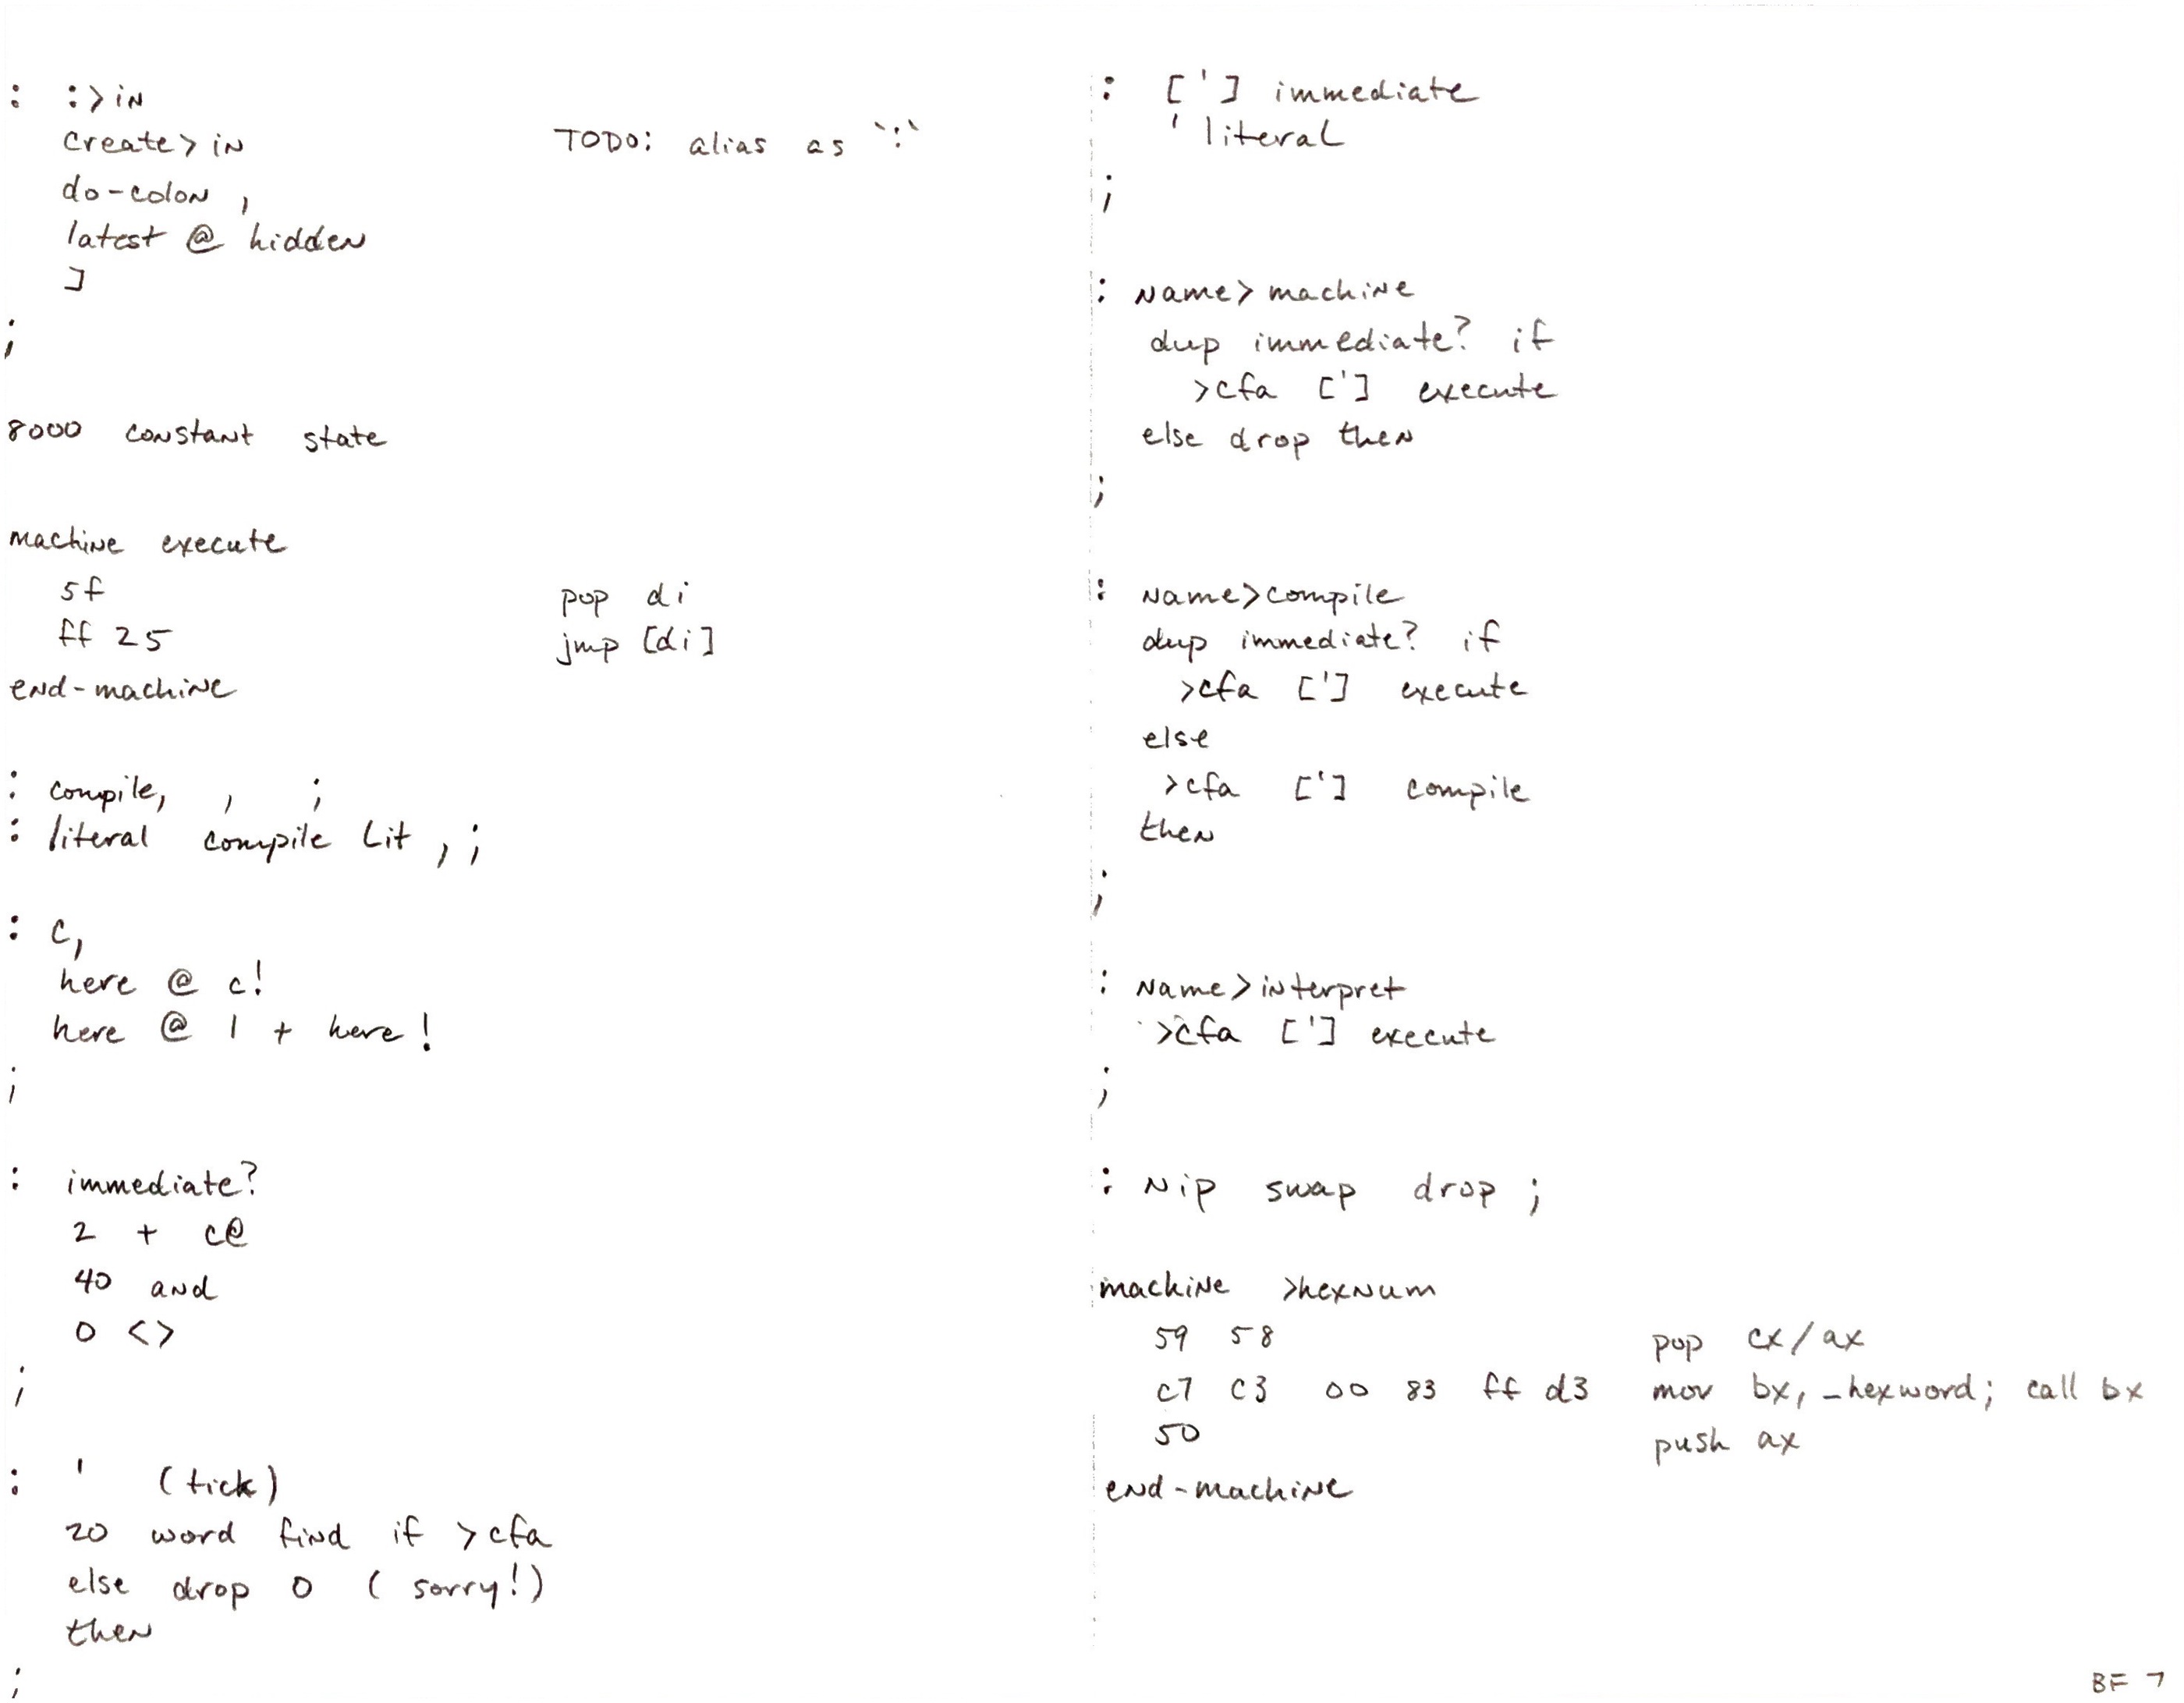 : :>in
create>in TODO: alias as `:`
do-colon ,
latest @ hidden
]
;
8000 constant state
machine execute
5f pop di
ff 25 jmp [di]
end-machine
: compile, , ;
: literal compile lit , ;
: c,
here @ c!
here @ 1 + here !
;
: immediate?
2 + c@
40 and
0 <>
;
: ' (tick)
20 word find if >cfa
else drop 0 ( sorry!)
then
;
: ['] immediate
' literal
;
: name>machine
dup immediate? if
>cfa ['] execute
else drop then
;
: name>compile
dup immediate? if
>cfa ['] execute
else
>cfa ['] compile
then
;
: name>interpret
>cfa ['] execute
;
: nip swap drop ;
machine >hexnum
59 58 pop cx/ax
c7 c3 00 83 ff d3 mov bx, _hexword; call bx
50 push ax
end-machine
BF 7